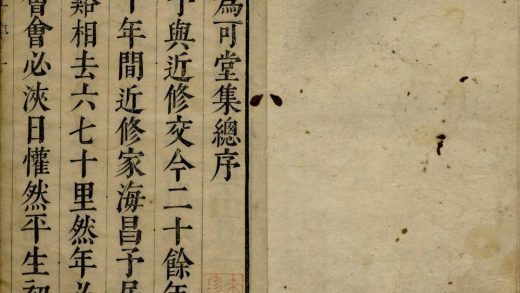 為可堂集總序
與近修交今二十餘年
十年間近修家海昌予居
谿相去六七十里然年
會會必浹日懽然平生初